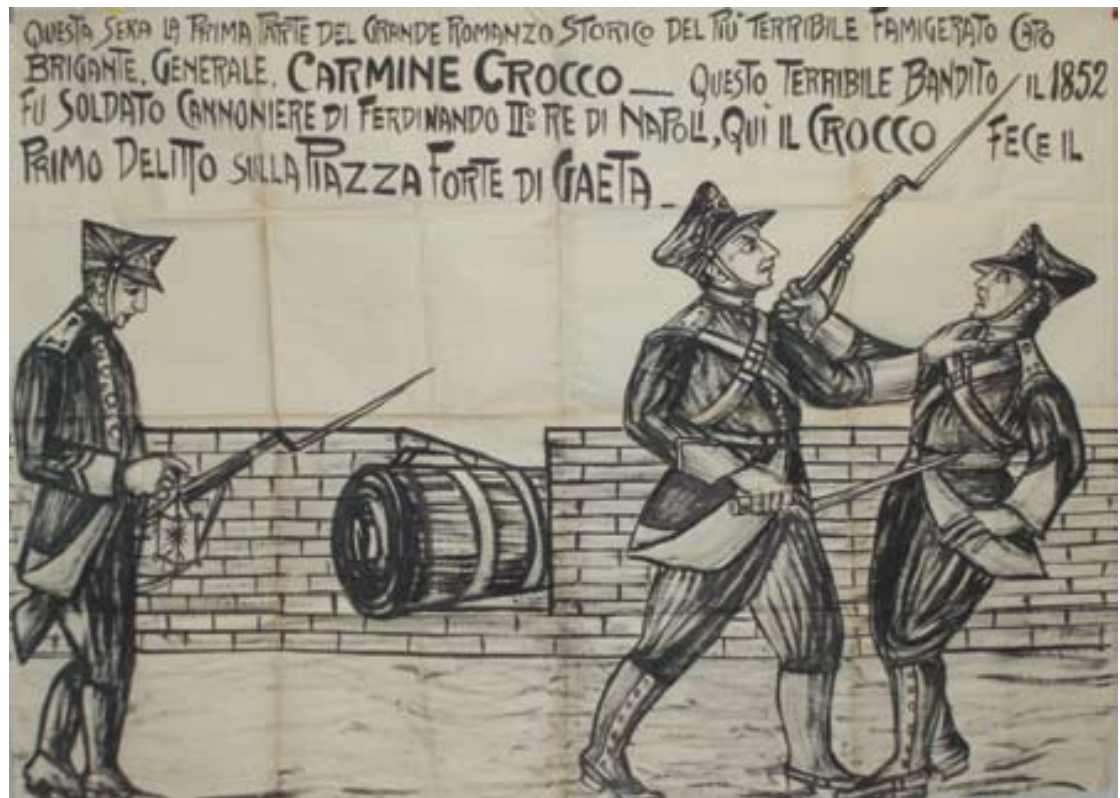 QUESTA SERA LA PRIMA PARTE DEL GRANDE ROMANZO STORICO DEL PIÙ TERRIBILE FAMIGERATO CAPO
BRIGANTE, GENERALE, CARMINE CROCCO — QUESTO TERRIBILE BANDITO IL 1852
FU SOLDATO CANNONIERE DI FERDINANDO II° RE DI NAPOLI, QUI IL CROCCO FECE IL
PRIMO DELITTO SULLA PIAZZA FORTE DI GAETA _